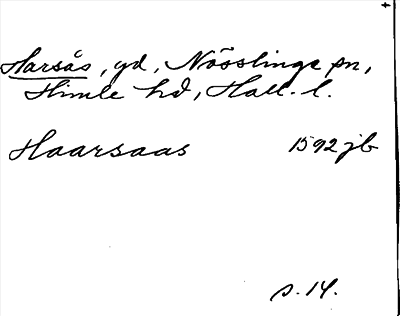 Harsås, gd, Nösslinge sn,
Himle hd, Hall. l.
Haarsaas 1592 jb
s. 14.